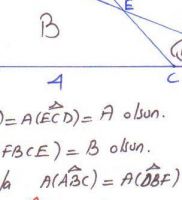 E
B
A
C
)=A(ECD)=A olsun.
FBCE)=B olsun.
A(ABC)=A(DBF)